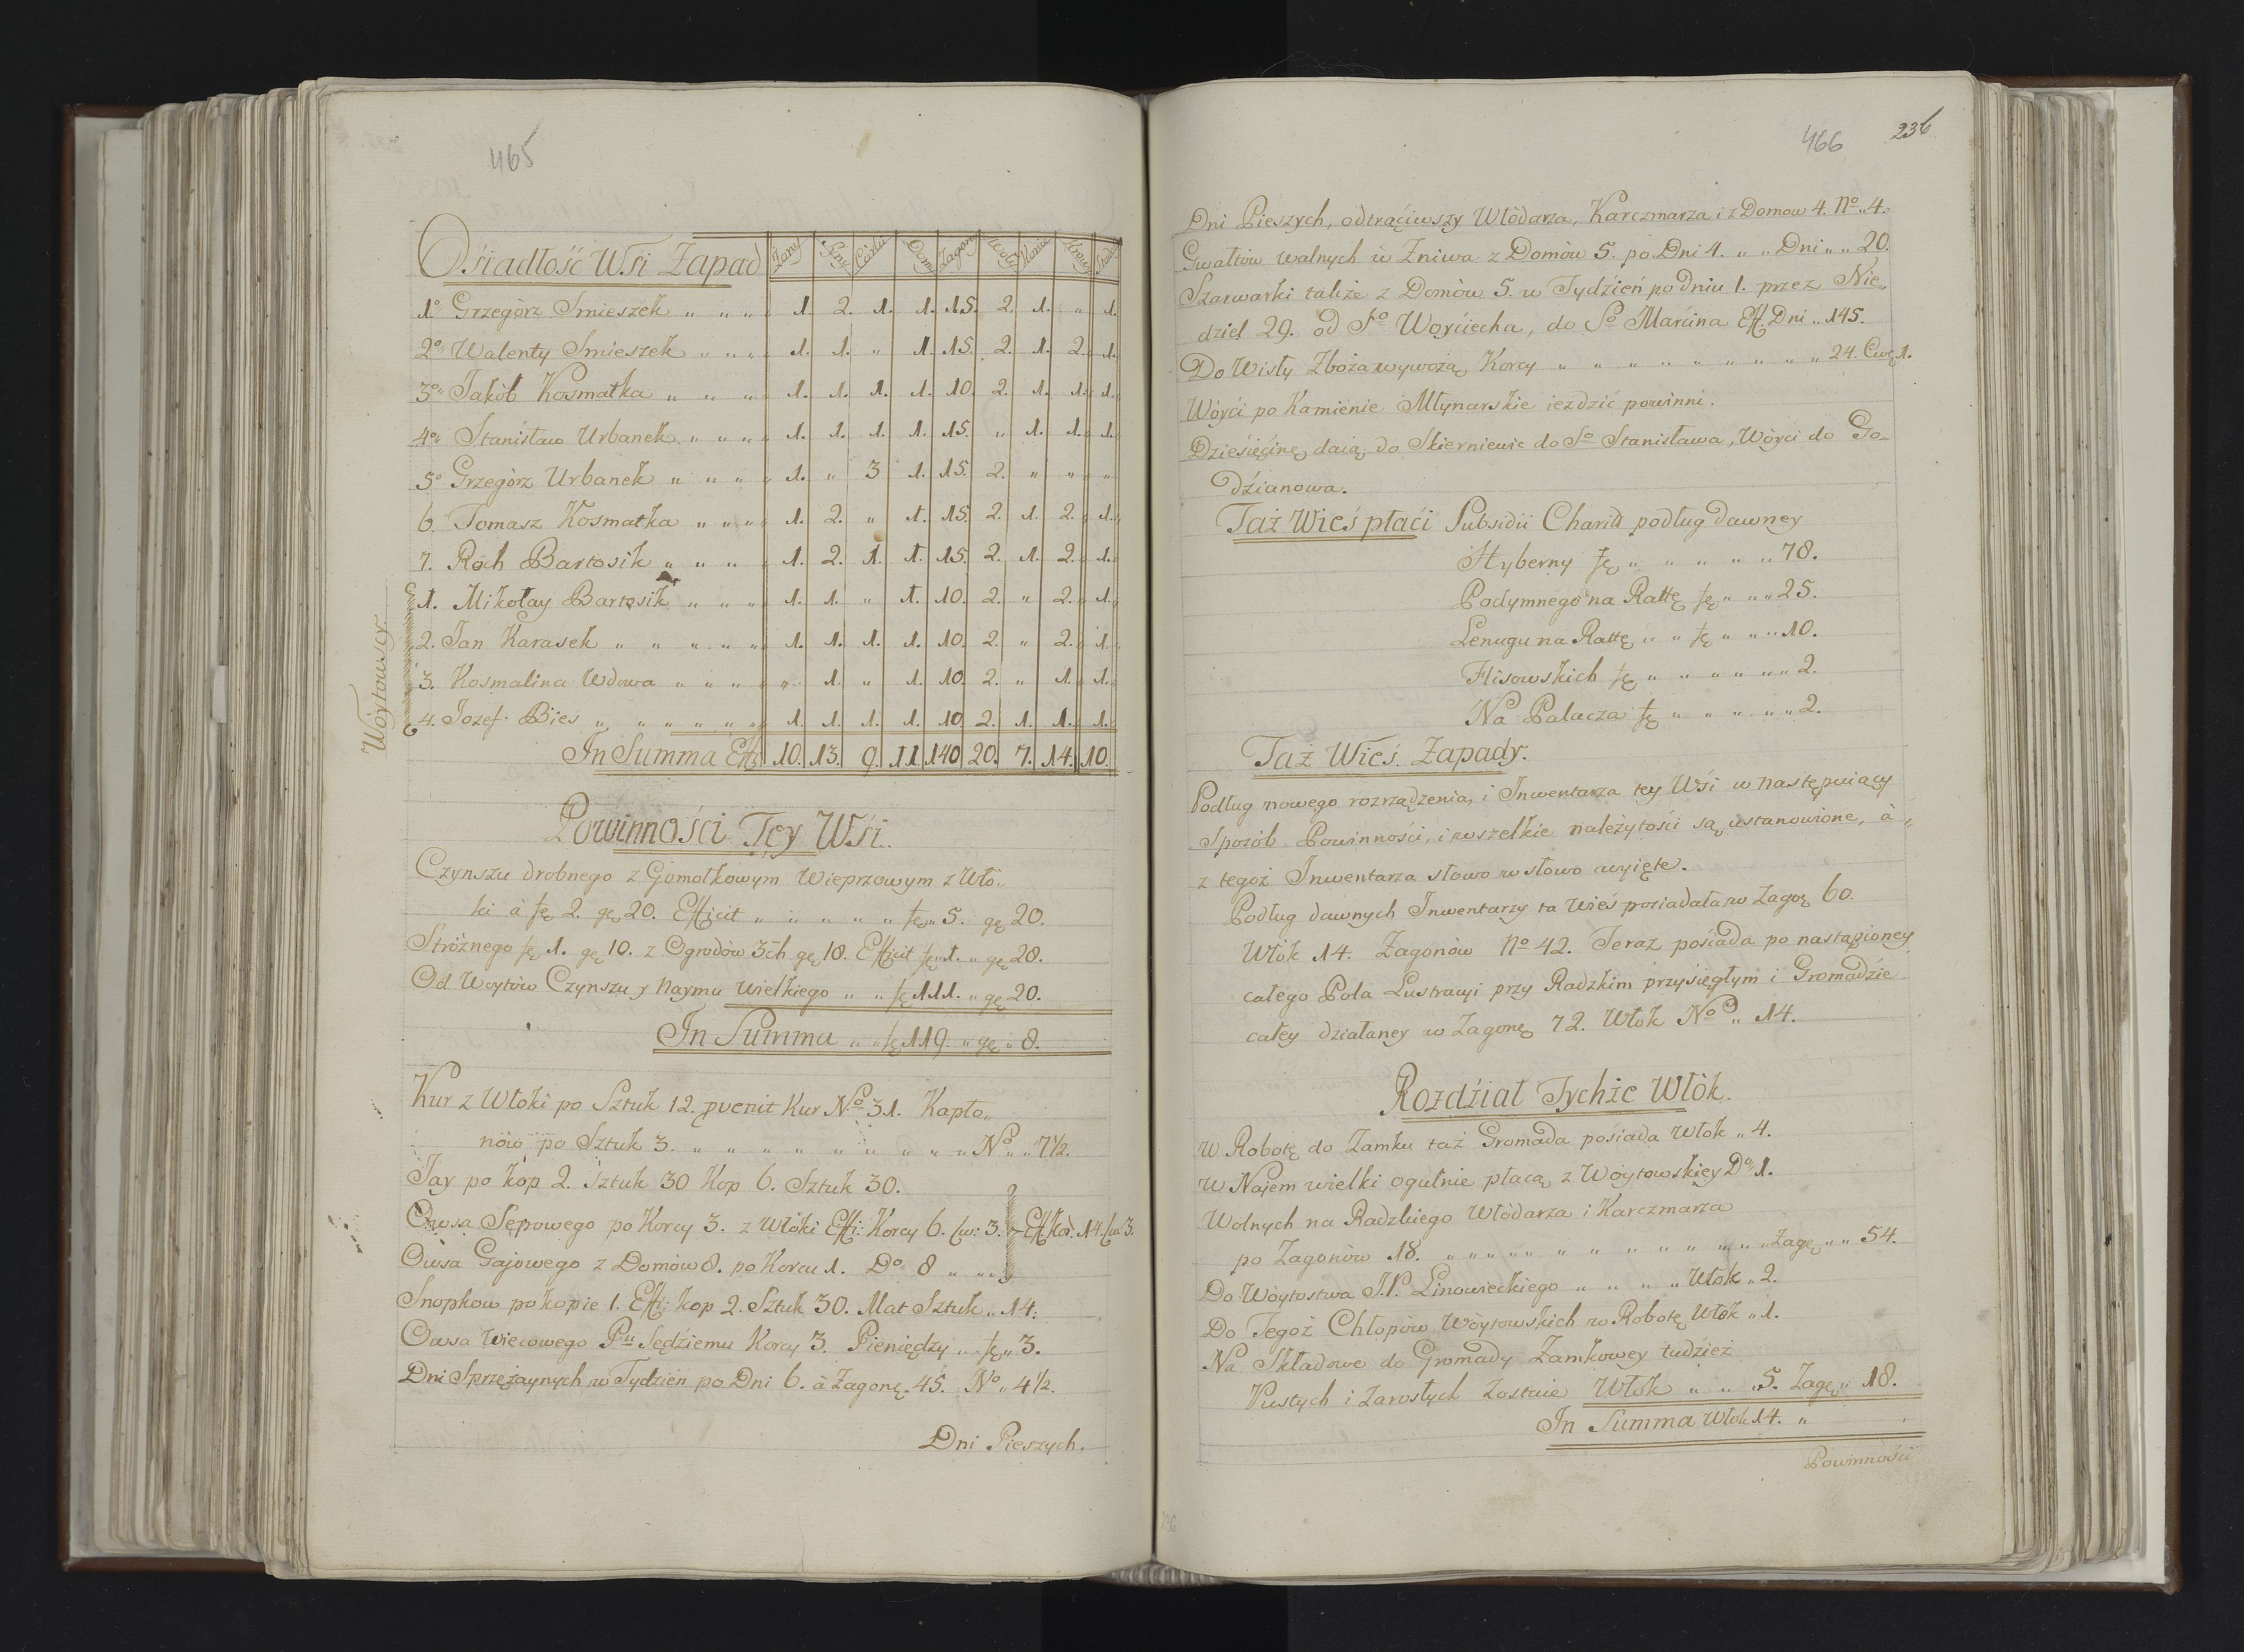 465
Osiadłość Wsi Zapad Żony Syny Córki Domy Zagony Woły Konie Krowy
1o Grzegórz Smieszek " " " " 1. 2. 1. 1. 15. 2. 1. " 1.
2o Walenty Smieszek " " " " 1. 1. " 1. 15. 2. 1. 2. 1.
3o Jakób Kosmatka " " " " 1. 1. 1. 1. 10. 2. 1. 1. 1.
4o Stanisław Urbanek " " " " 1. 1. 1. 1. 15. " 1. 1. 1.
5o Grzegórz Urbanek " " " " 1. " 3 1. 15. 2. " " "
6. Tomasz Kosmatka " " " " 1. 2. " 1. 15. 2. 1. 2. 1.
7. Roch Bartosik " " " " 1. 2. 1. 1. 15. 2. 1. 2. 1.
Wóytowscy
1. Mikołay Bartosik " " " " 1. 1. " 1. 10. 2. " 2. 1.
2. Jan Karasek " " " " " 1. 1. 1. 1. 10. 2. " 2. 1.
3. Kosmalina Wdowa " " " " " 1. " 1. 10. 2. " 1. 1.
4. Jozef Bies " " " " " " 1. 1. 1. 1. 10. 2. 1. 1. 1.
In Summa Effi 10. 13. 9. 11. 140 20. 7. 14. 10.
Powinności Tey Wsi.
Czynszu drobnego z Gomołkowym Wieprzowym z Wło„
ki à fę 2. gę 20. Efficit " " " " " fę " 5. gę 20.
Stróżnego fę 1. gę 10. z Ogrodów 3ch gę 18. Efficit fę " 1. " gę 28.
Od Woytów Czynszu y Naymu wielkiego " " fę 111. " gę 20.
In Summa " " fę 119. " gę " 8.
Kur z Włoki po Sztuk 12. pvenit Kur No 31. Kapło„
nów po Sztuk 3. " " " " " " " " " No " " 7½.
Jay po kop 2. Sztuk 30 Kop 6. Sztuk 30.
Owsa Sepowego po Korcy 3. z Włóki Effi: Korcy 6. Cw: 3. Eff Kor: 14. Cw 3.
Owsa Gajowego z Domów 8. po Korcu 1. Do 8 " " "
Snopkow po kopie 1. Effi: kop 2. Sztuk 30. Mat Sztuk " 14.
Owsa Wiecowego Pu Sędziemu Korcy 3. Pieniędzy " fę " 3.
Dni Sprzężaynych w Tydzień po Dni 6. à Zagonę. 45. No " 4½.
Dni Pieszych.
466 236
Dni Pieszych, odtrąciwszy Włódarza, Karczmarza i z Domow 4. No " 4.
Gwałtów walnych w Żniwa z Domów 5. po Dni 4. " " Dni " " 20.
Szarwarki takie z Domów 5. w Tydzień po dniu 1. przez Nie„
dziel 29. od So Woyciecha, do So Marcina Eff. Dni " 145.
Do Wisły Zboża wywożą Korcy " " " " " " " " " 24. Cwę 1.
Wóyci po Kamienie Młynarskie iezdzić powinni.
Dziesięcinę daią do Skierniewic do So Stanisława, Wóyci do Go„
dzianowa.
Taż Wieś płaci Subsidii Charit podług dawney
Hyberny fę " " " " " " 78.
Podymnego na Rattę fę " " " 25.
Lenugu na Rattę " " fę " " " 10.
Flisowskich fę " " " " " " 2.
Na Palacza fę " " " " " 2.
Taż Wieś. Zapady.
Podług nowego rozrządzenia, i Inwentarza tey Wsi w następuiący
Sposób Powinności, i wszelkie należytości są ustanowione, à „
z tegoż Inwentarza słowo w słowo wyięte.
Podług dawnych Inwentarzy ta Wieś posiadała w Zagoę 60.
Włók 14. Zagonów No 42. Teraz posiada po nastąpioney
całego Pola Lustracyi przy Radzkim przysięgłym i Gromadzie
całey działaney w Zagonę 72. Włok No " 14.
Rozdział Tychże Włók.
W Robotę do Zamku taż Gromada posiada Włok " 4.
W Najem wielki ogulnie płacą z Wóytowskiey Do 1.
Wolnych na Radzkiego Włódarza i Karczmarza
po Zagonów 18. " " " " " " " " " " " " Zagę " " 54.
Do Wóytostwa J.P. Linowieckiego " " " " Włok " 2.
Do Tegoż Chłopów Wóytowskich w Robotę Włok " 1.
Na Składowe do Gromady Zamkowey tudzież
Pustych i Zarosłych Zostaie Włok " " " 5. Zagę " 18.
In Summa Włok 14. "
Powinności